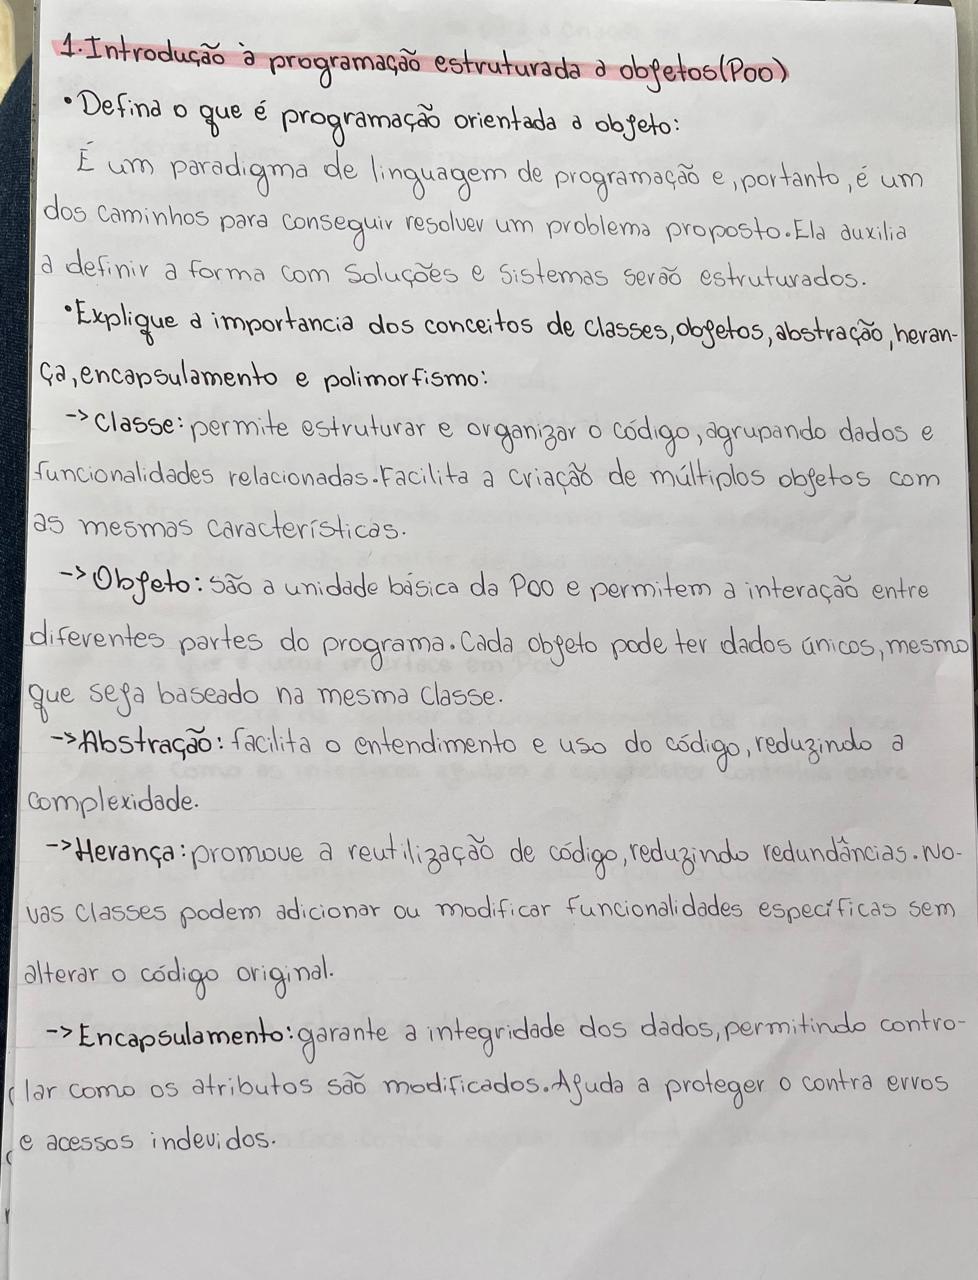 1. Introdução à programação estruturada a objetos (POO)
• Defina o que é programação orientada a objeto:
É um paradigma de linguagem de programação e, portanto, é um
dos caminhos para conseguir resolver um problema proposto. Ela auxilia
a definir a forma com soluções e sistemas serão estruturados.
• Explique a importancia dos conceitos de classes, objetos, abstração, heran-
ça, encapsulamento e polimorfismo:
-> Classe: permite estruturar e organizar o código, agrupando dados e
funcionalidades relacionadas. Facilita a criação de múltiplos objetos com
as mesmas características.
-> Objeto: são a unidade básica da POO e permitem a interação entre
diferentes partes do programa. Cada objeto pode ter dados únicos, mesmo
que seja baseado na mesma classe.
-> Abstração: facilita o entendimento e uso do código, reduzindo a
complexidade.
-> Herança: promove a reutilização de código, reduzindo redundâncias. No-
vas classes podem adicionar ou modificar funcionalidades específicas sem
alterar o código original.
-> Encapsulamento: garante a integridade dos dados, permitindo contro-
lar como os atributos são modificados. Ajuda a proteger o contra erros
e acessos indevidos.